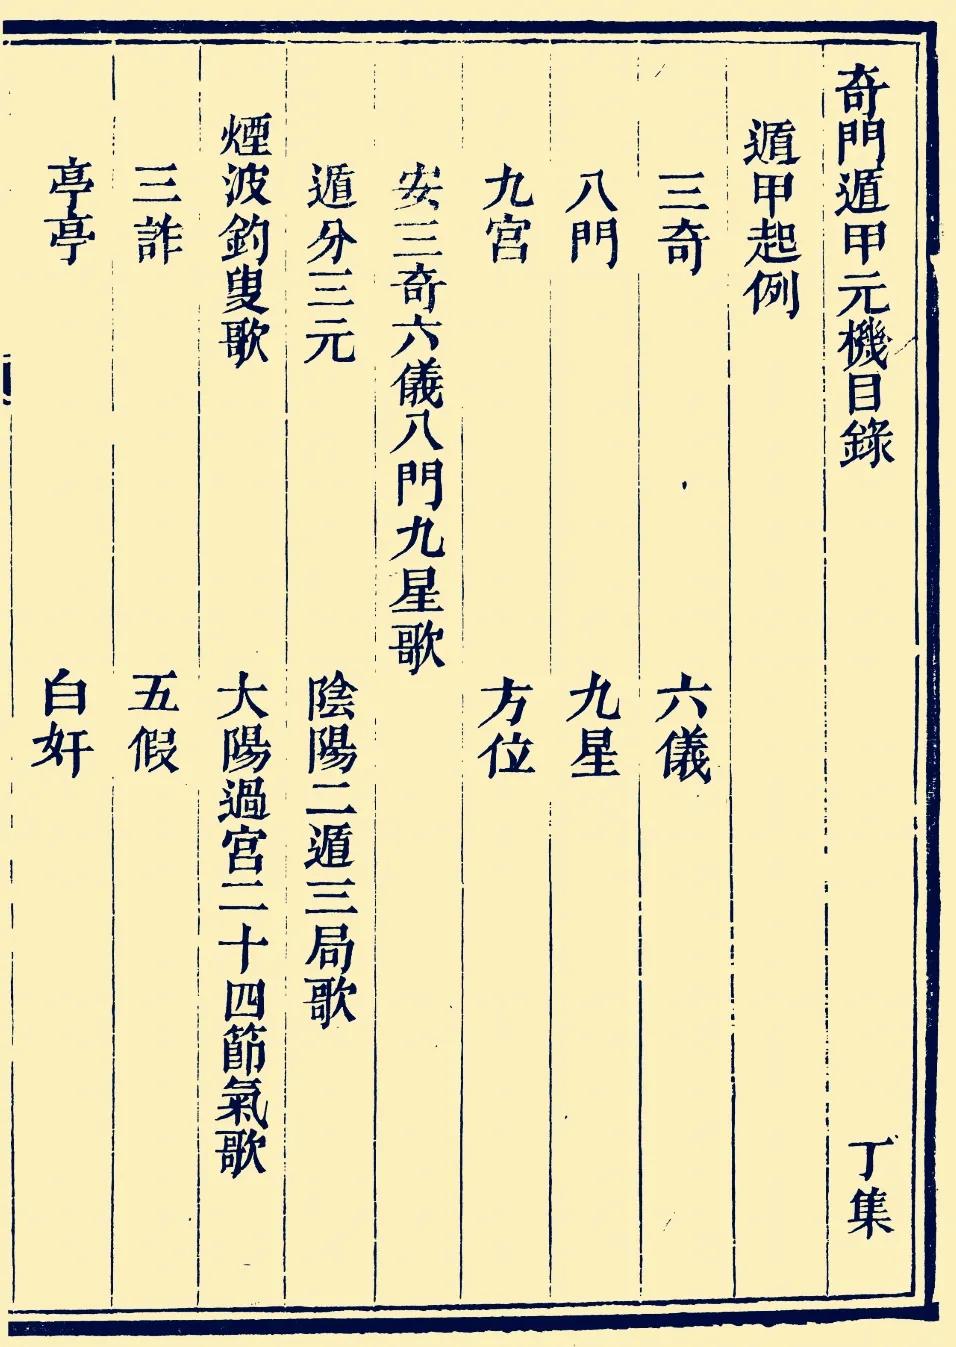 奇門遁甲元機目錄 丁集
遁甲起例
三奇 六儀
八門 九星
九宮 方位
安三奇六儀八門九星歌
遁分三元 陰陽二遁三局歌
煙波釣叟歌 大陽過宮二十四節氣歌
三詐 五假
亭亭 白奸